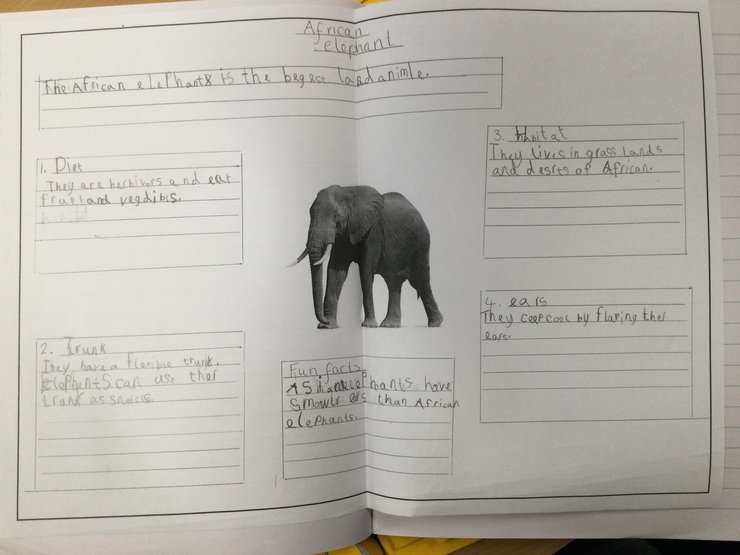 African
elephant
The African elephants is the begest landanimle.
1. Diet
They are herbivors and eat
fruet and vegdibls.
2. Trunk
They have a flexible trunk.
Elephants can use ther
trunk as snorcls.
3. Habitat
They lives in grass lands
and desrts of African.
4. ears
They ceep cool by flaping ther
ears.
Fun facts
elephants have
smowlr ers than African
elephants.